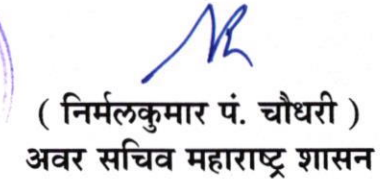 ( निर्मलकुमार पं. चौधरी )
अवर सचिव महाराष्ट्र शासन